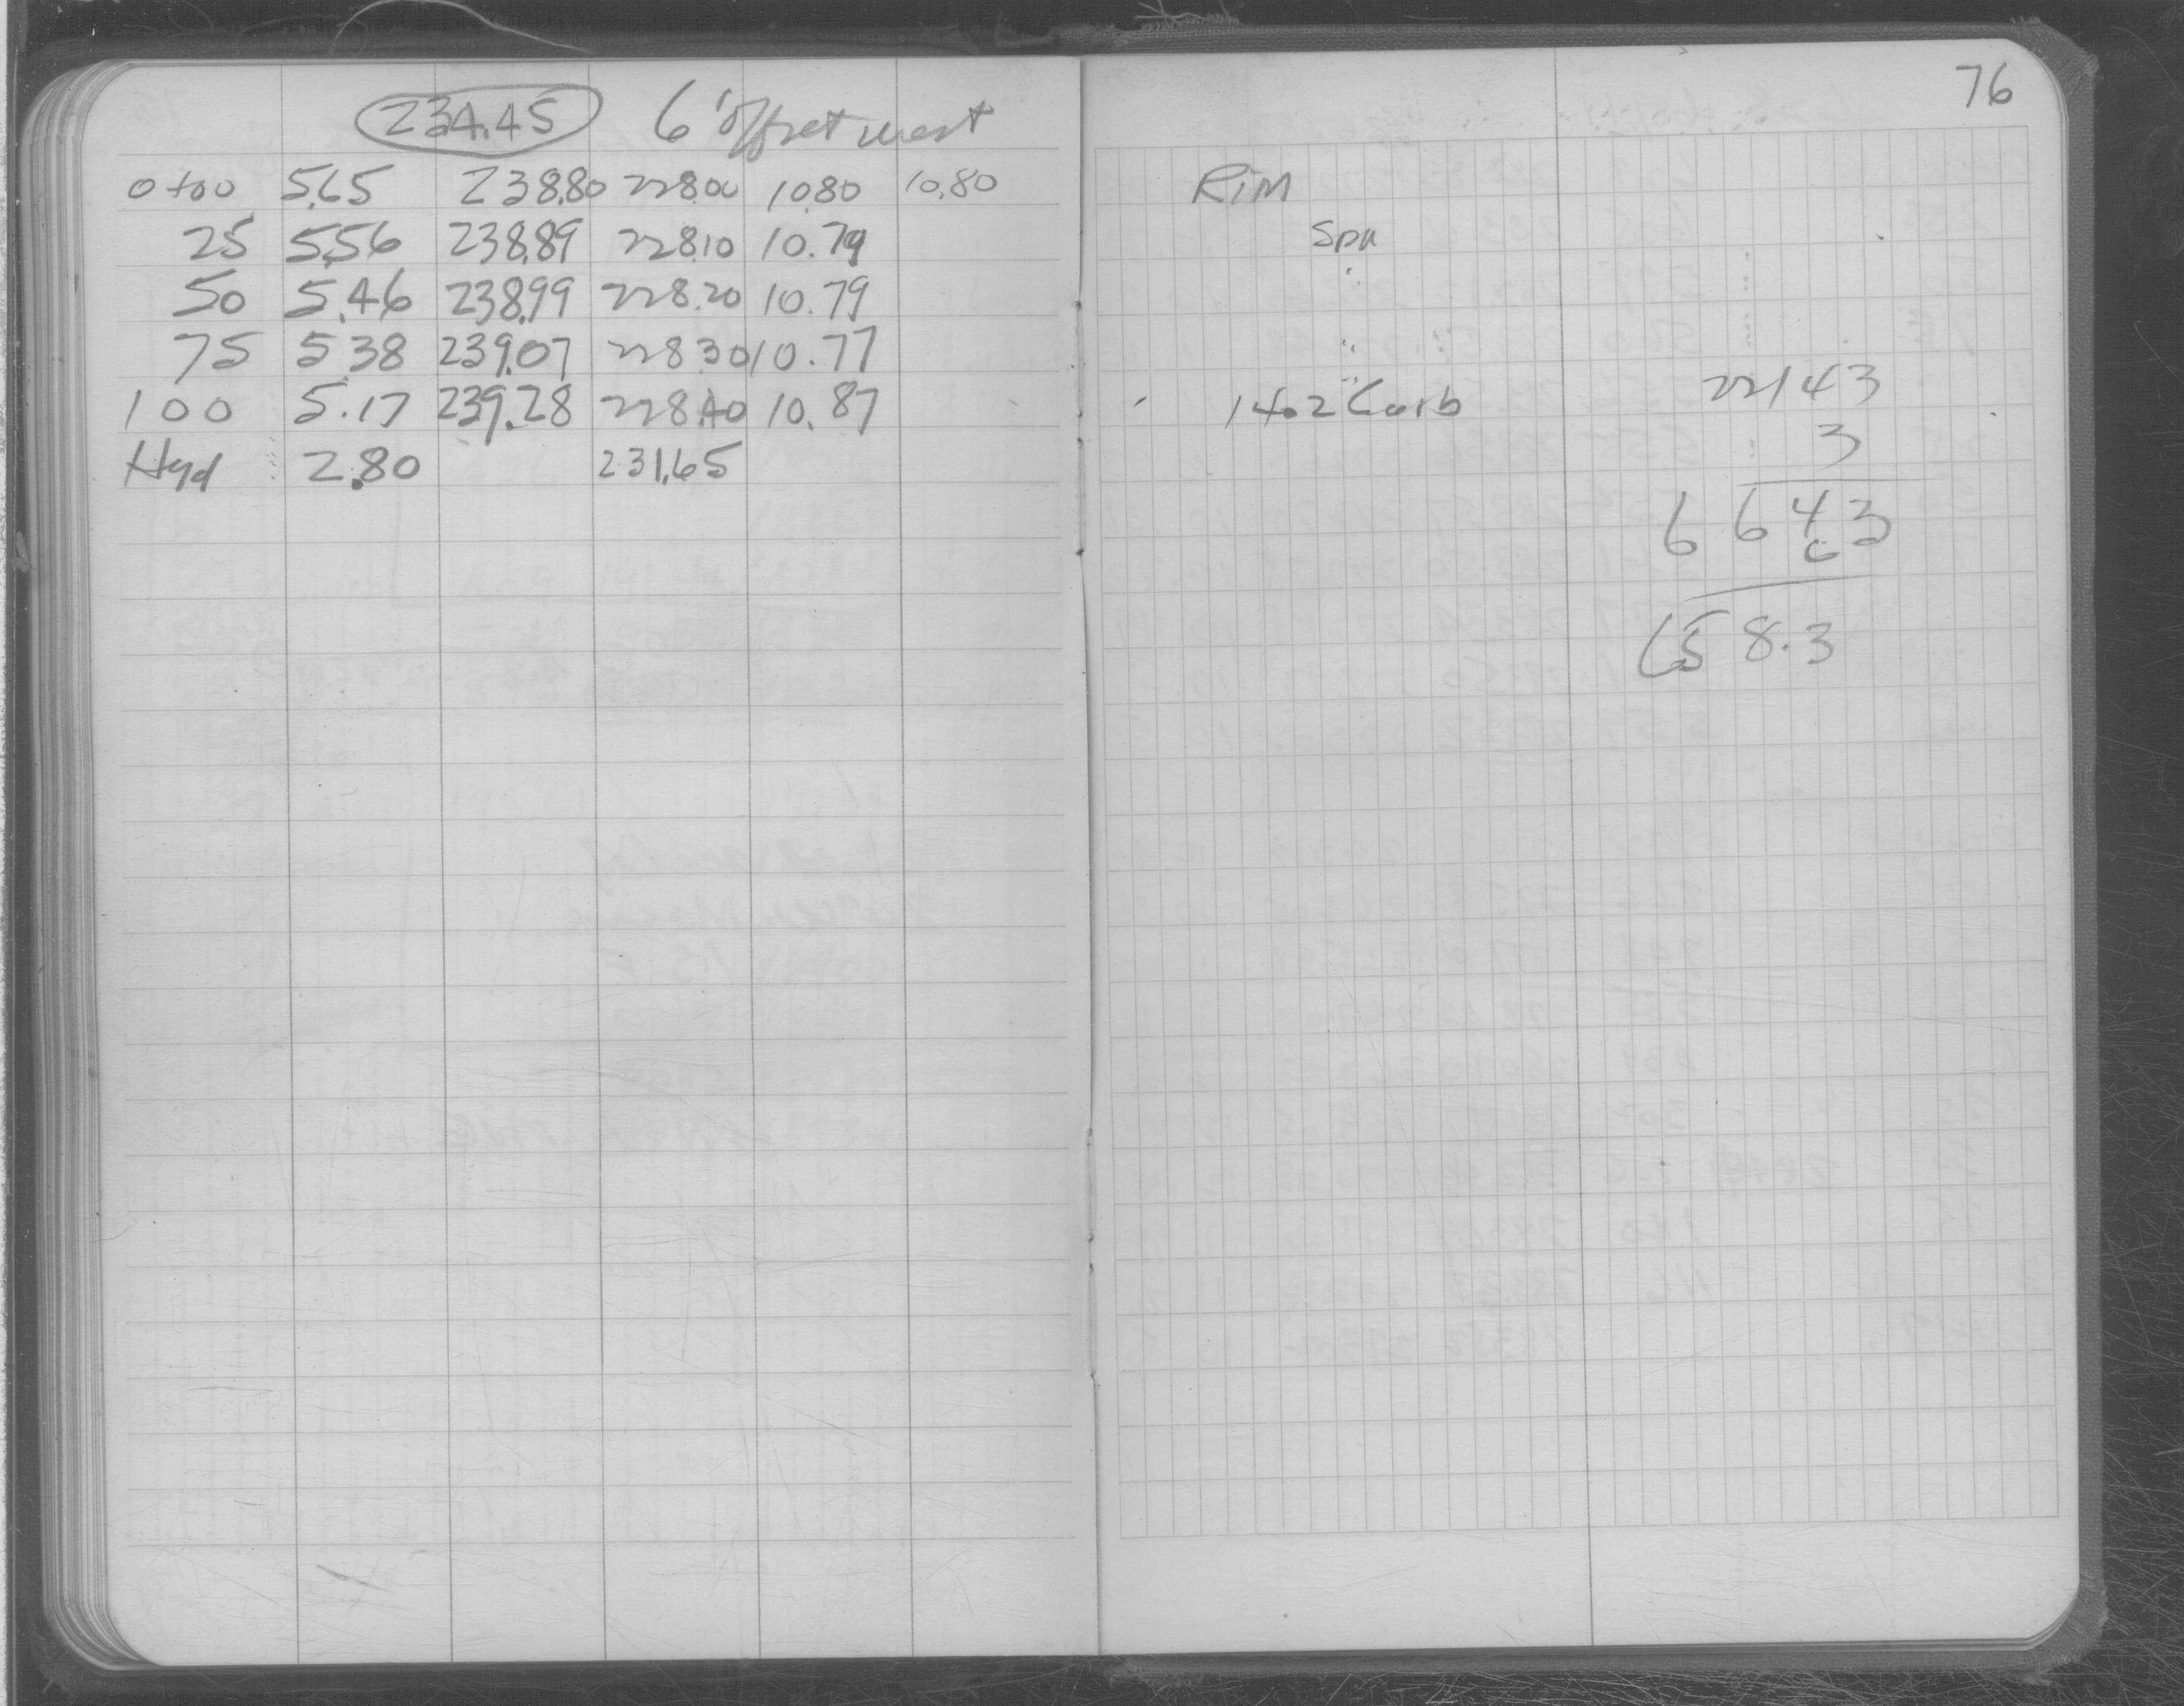 234.45 6' offset west
0+00 5.65 238.80 228.00 10.80 10.80
25 5.56 238.89 228.10 10.79
50 5.46 238.99 228.20 10.79
75 5.38 239.07 228.30 10.77
100 5.17 239.28 228.40 10.87
Hyd 2.80 231.65
76
RIM
Spn
"
"
"
14.2 Curb
22143
3
6643
6
658.3